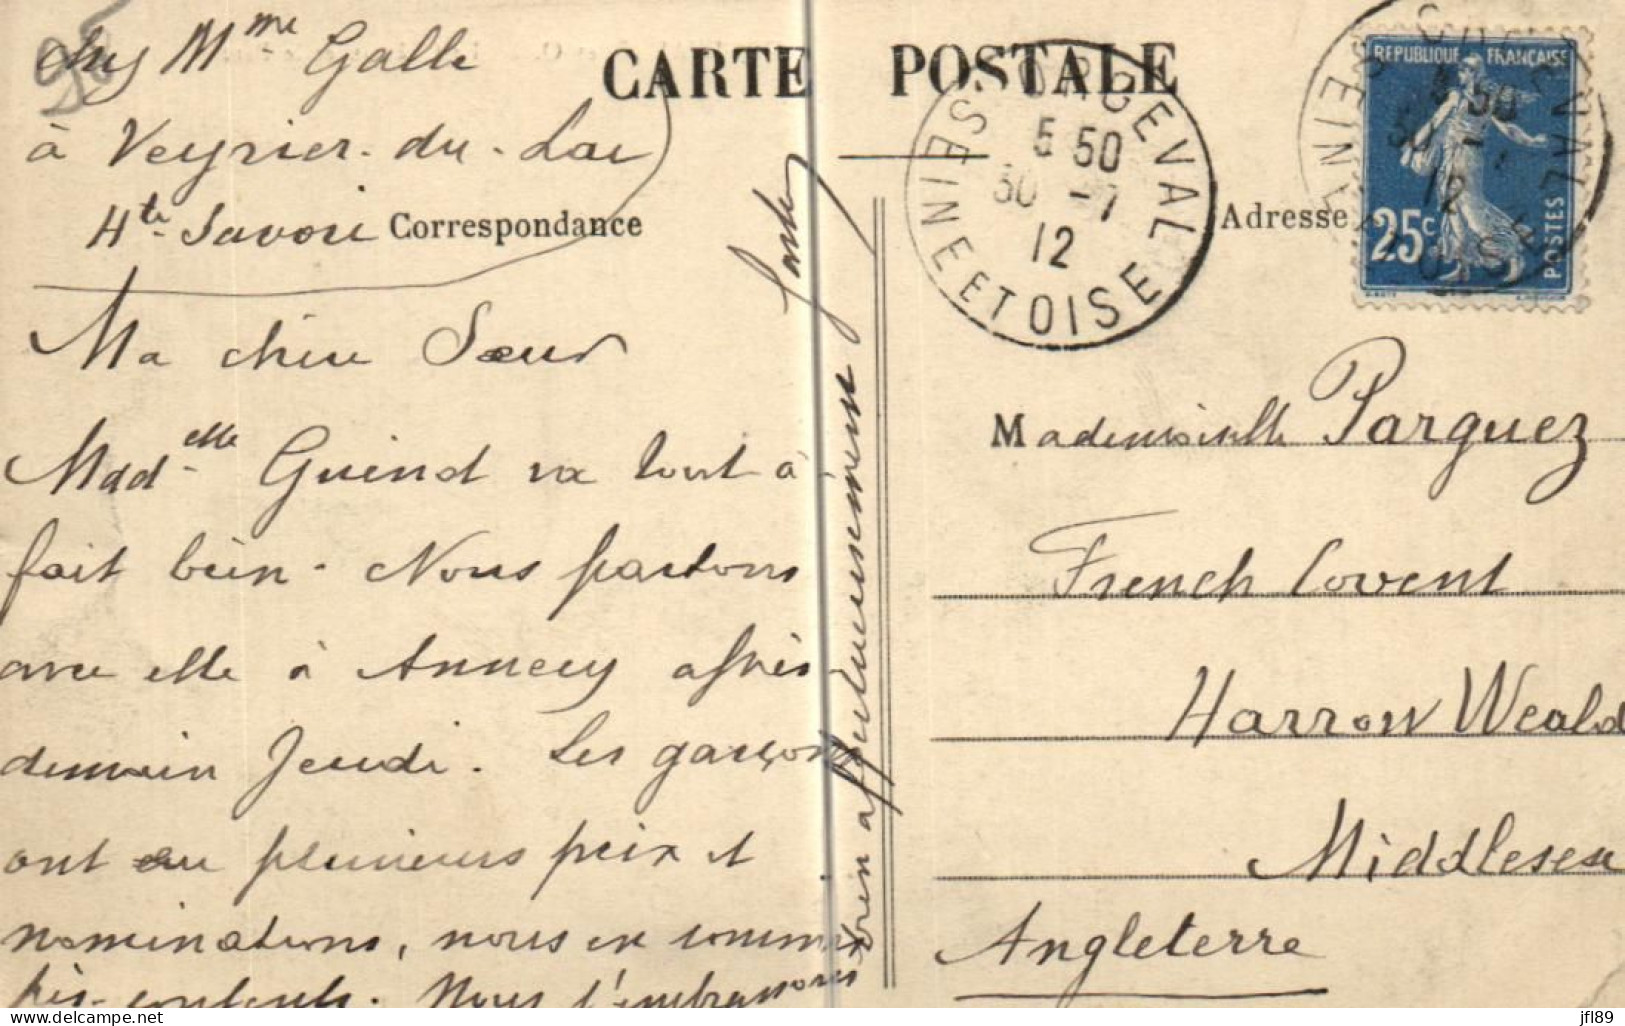 chez Mme Galle
CARTE POSTALE
à Veyrier-du-Lac
Hte Savoie
Correspondance
Ma chère Sœur
Madelle Guind va tout à
fait bien. Nous partons
avec elle à Annecy après
demain Jeudi. Les garçons
ont eu plusieurs prix et
nominations, nous en sommes
très contents. Nous t'embrassons
bien affectueusement
ORGEVAL
5 50
30 -7
12
SEINE ET OISE
REPUBLIQUE FRANÇAISE
25c
POSTES
ORGEVAL
5 50
30 -7
12
SEINE ET OISE
Adresse
Mademoiselle Parguez
French Covent
Harrow Weald
Middlesex
Angleterre
delcampe.net
jfl89